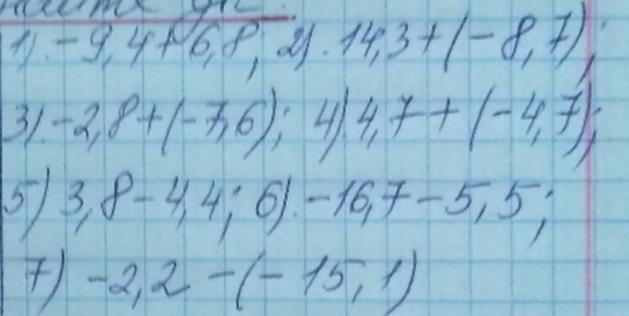 1). -9,4+6,8; 2). 14,3+(-8,7);
3). -2,8+(-7,6); 4) 4,7+(-4,7);
5) 3,8-4,4; 6). -16,7-5,5;
7) -2,2-(-15,1)